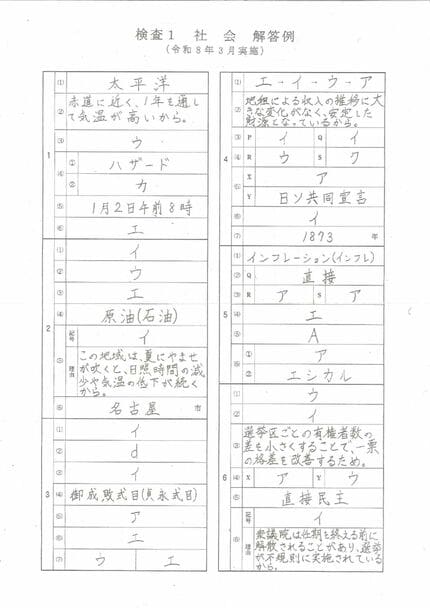 検査1 社会 解答例
(令和8年3月実施)
1
① 太平洋
② 赤道に近く、1年を通し
て気温が高いから。
③ ウ
④ ① ハザード
② カ
⑤ 1月2日午前8時
⑥ エ
2
① イ
② ウ
③ エ
④ 原油(石油)
⑤ 記号 イ
理由 この地域は、夏にやませ
が吹くと、日照時間の減
少や気温の低下が続く
から。
⑥ 名古屋 市
3
① イ
② d
③ イ
④ 御成敗式目(貞永式目)
⑤ ア
⑥ エ
⑦ ウ エ
4
① エ-イ-ウ-ア
② 地租による収入の推移に大
きな変化がなく、安定した
財源となっているから。
③ P イ Q イ
④ R ウ S ク
⑤ X ア
Y 日ソ共同宣言
⑥ イ
⑦ 1873 年
5
① インフレーション(インフレ)
② Q 直接
③ R ア S ア
④ エ
⑤ A
⑥ ① ア
② エシカル
6
① ウ
② イ
③ 選挙区ごとの有権者数の
差を小さくすることで、一票
の格差を改善するため。
④ X ア Y ウ
⑤ 直接民主
⑥ 記号 イ
理由 衆議院は任期を終える前に
解散されることがあり、選挙
が不規則に実施されている
から。